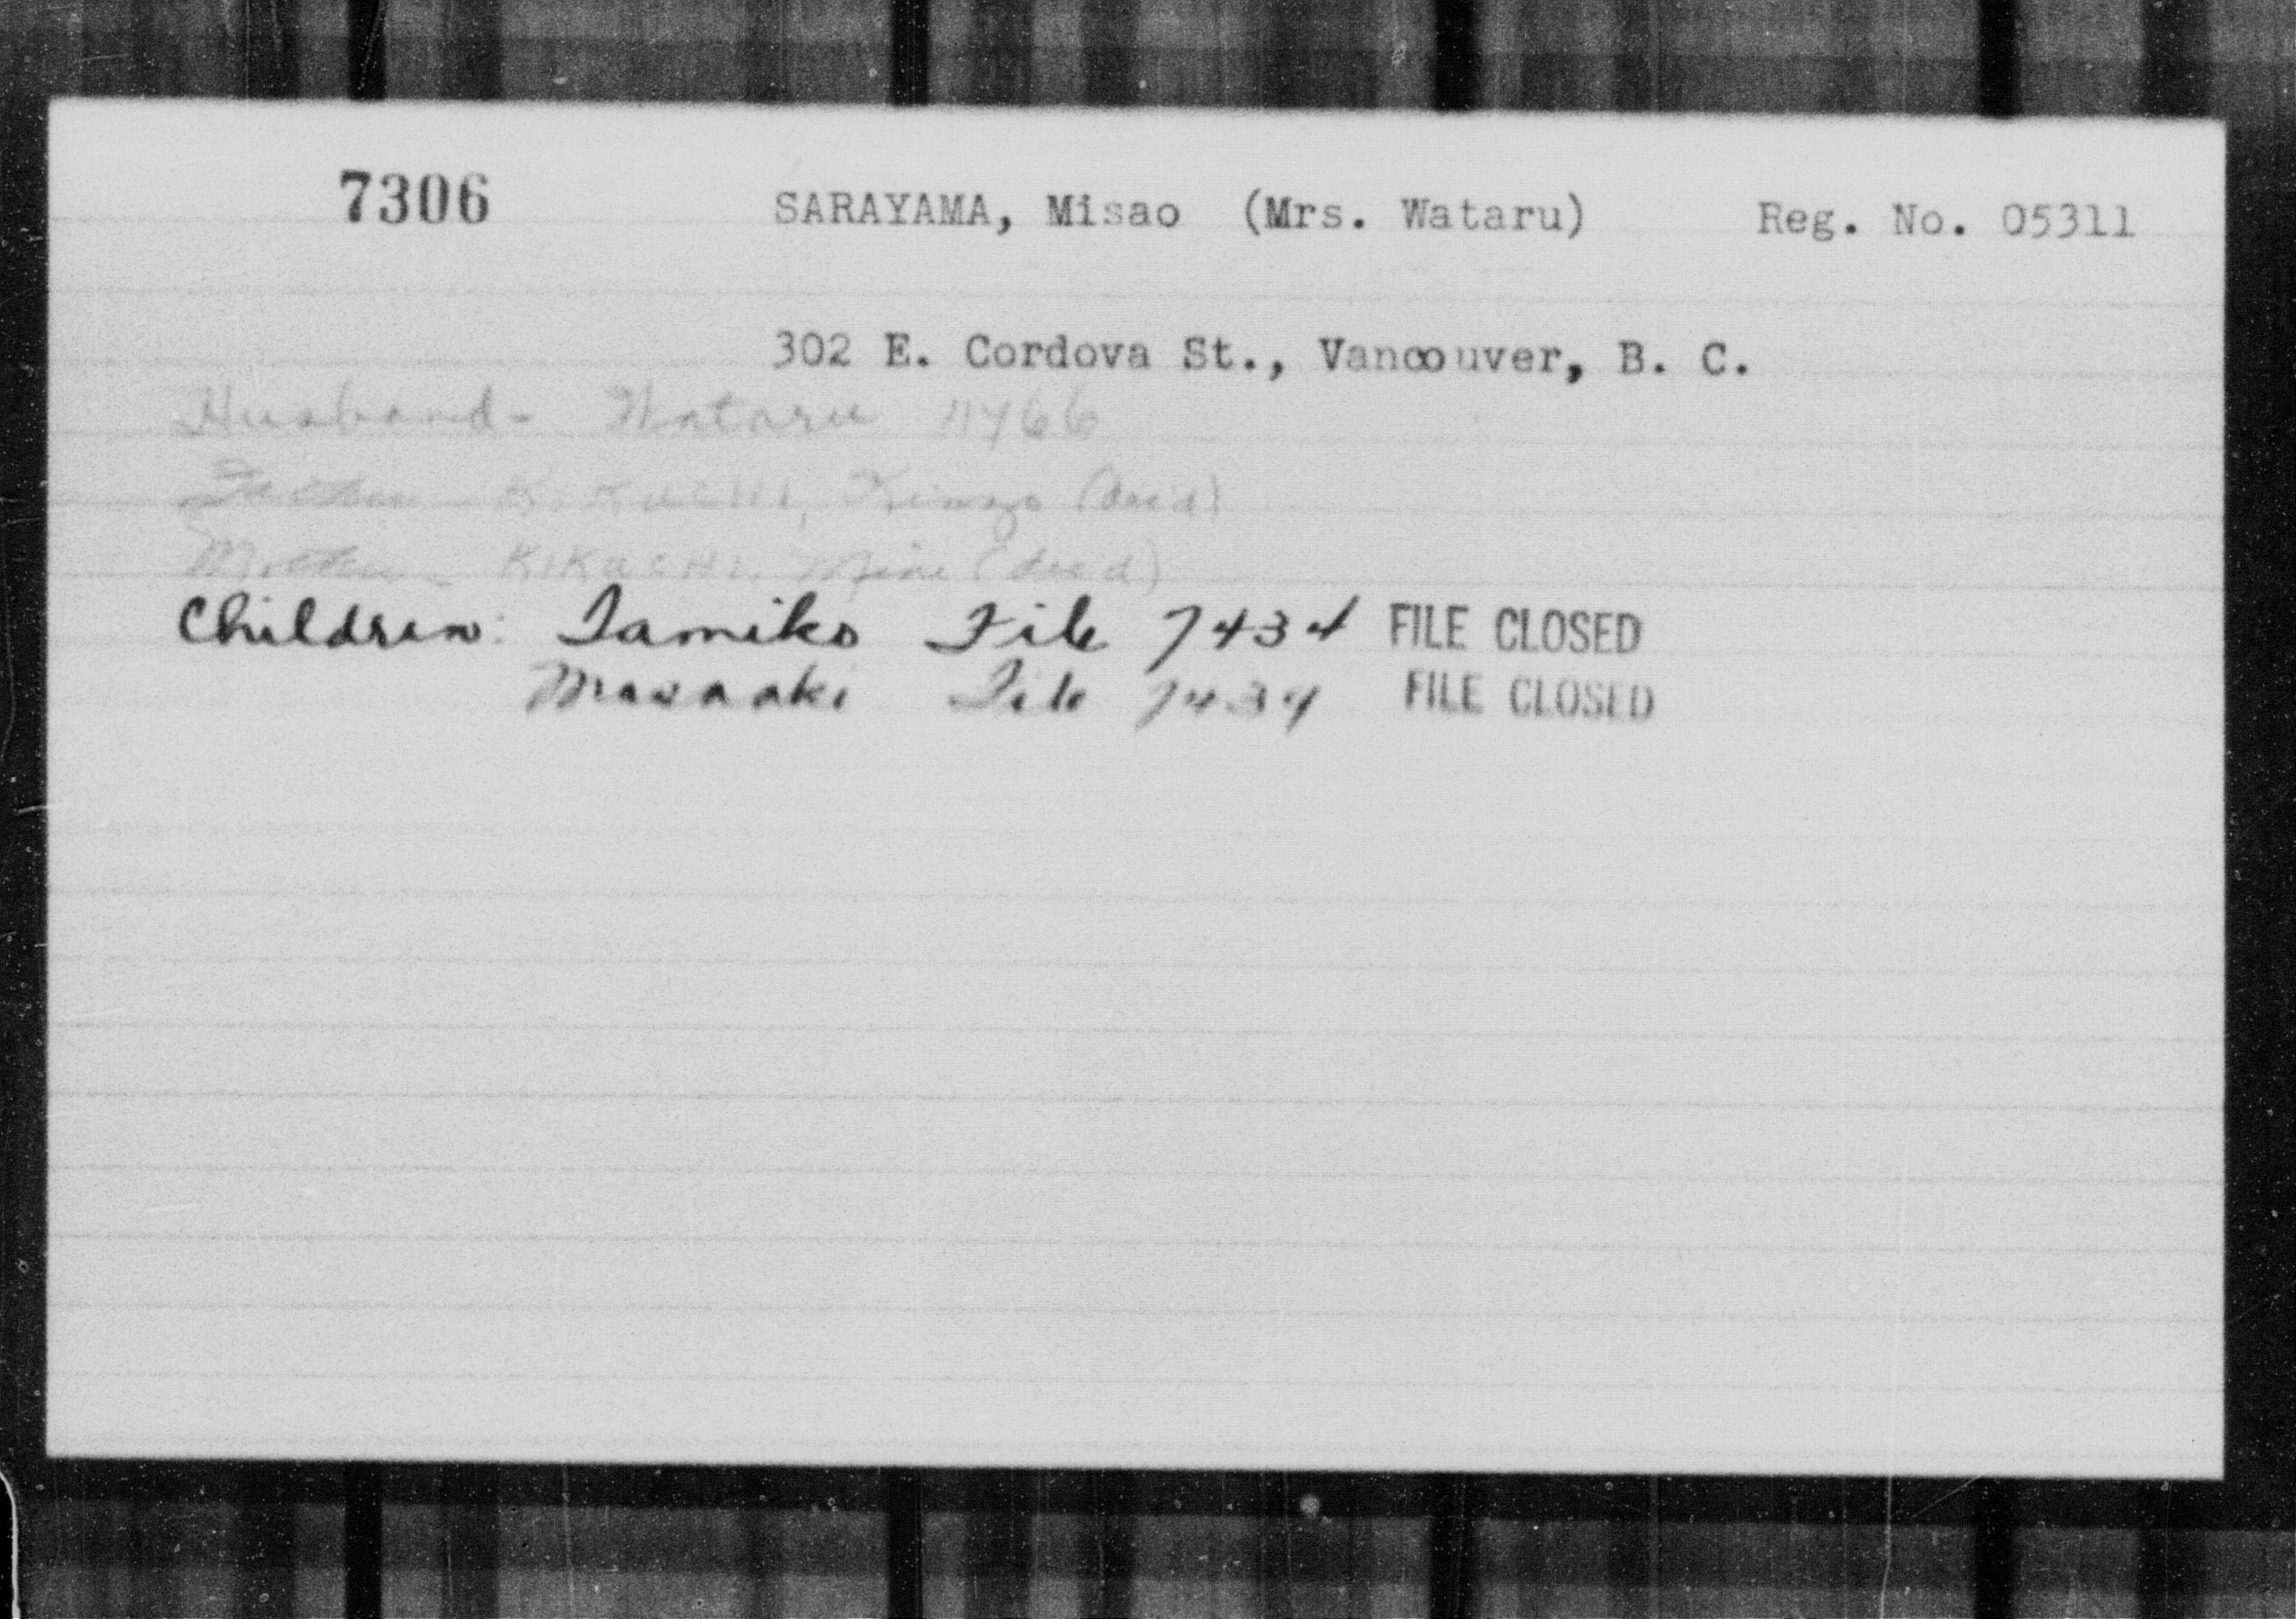 7306 SARAYAMA, Misao (Mrs. Wataru) Reg. No. 05311
302 E. Cordova St., Vancouver, B. C.
Husband - Wataru 11766
Father - KIKUCHI, Kinzo (dec'd)
Mother - KIKUCHI, Mine (dec'd)
Children: Tamiko File 7434 FILE CLOSED
Masaaki File 7434 FILE CLOSED